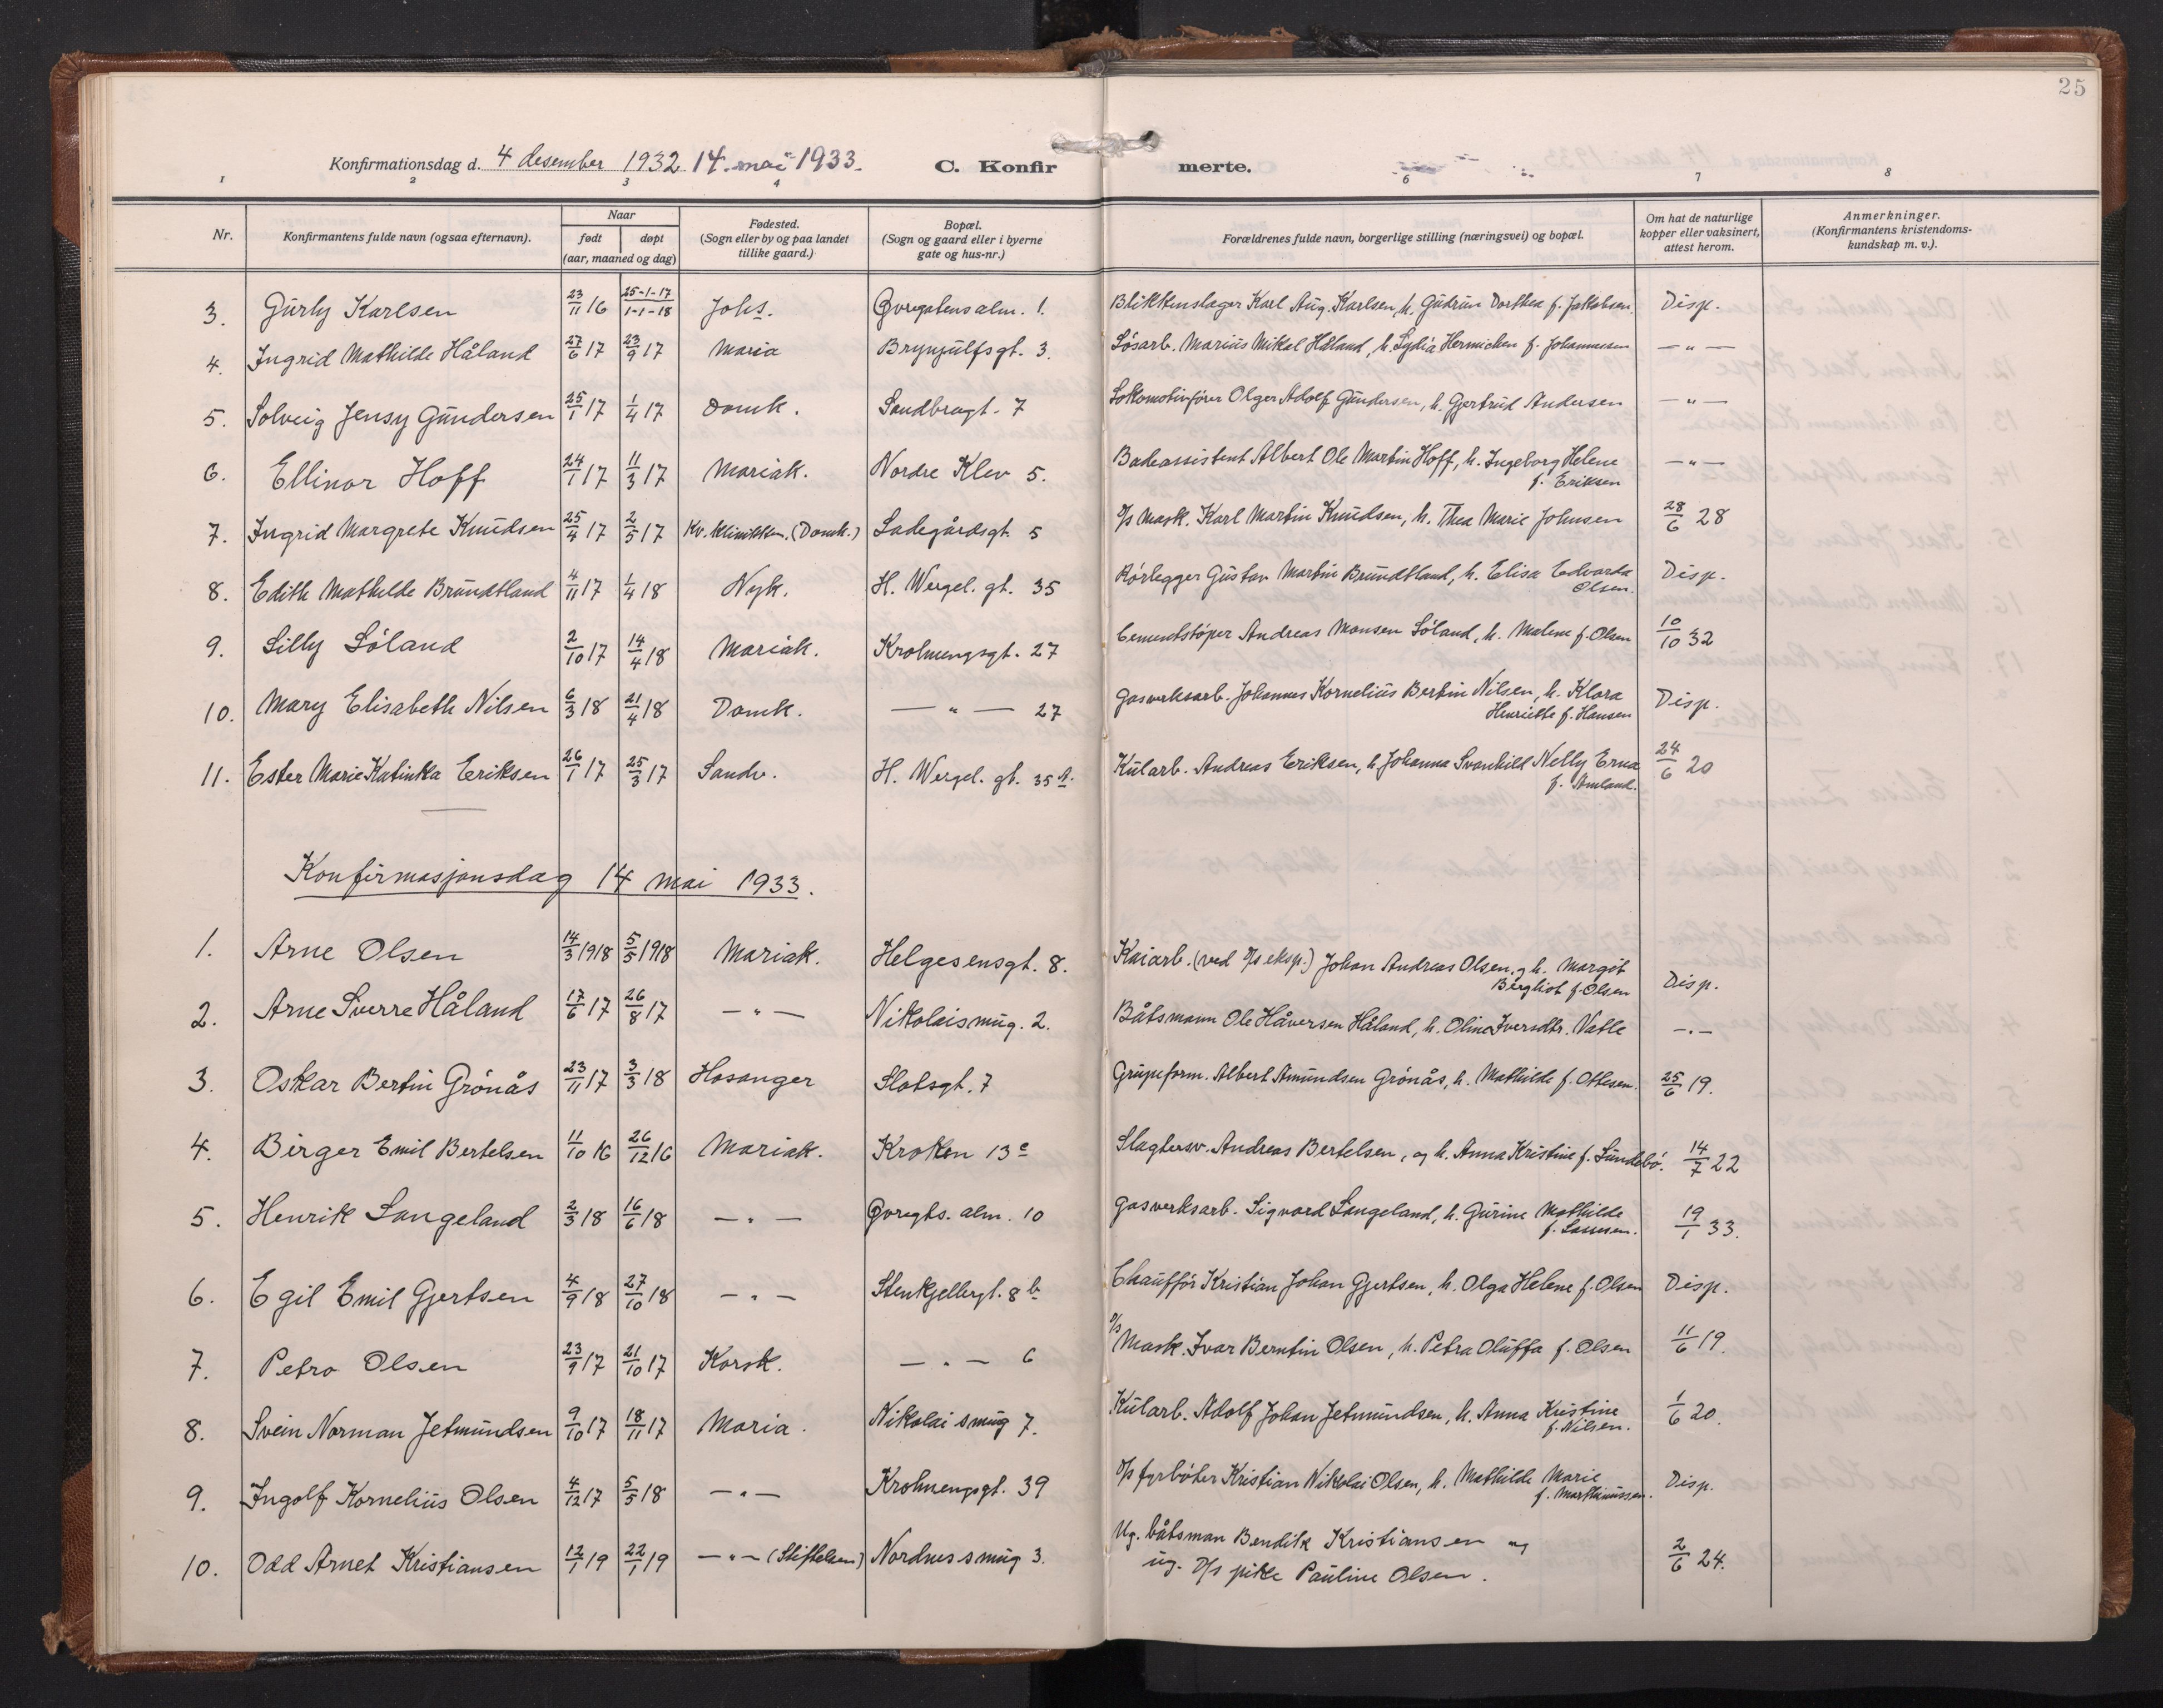 25
Konfirmationsdag d. 4 desember 1932 14. mai 1933. C. Konfirmerte.
1 2 3 4 6 7 8
Nr. | Konfirmantens fulde navn (ogsaa efternavn). | Naar født døpt (aar, maaned og dag) | Fødested. (Sogn eller by og paa landet tillike gaard.) | Bopæl. (Sogn og gaard eller i byerne gate og hus-nr.) | Forældrenes fulde navn, borgerlige stilling (næringsvei) og bopæl. | Om hat de naturlige kopper eller vaksinert, attest herom. | Anmerkninger. (Konfirmantens kristendoms-kundskap m. v.).
3. Gurly Karlsen 23/11 16 25-1-17 1-1-18 Johs. Øvregatens alm. 1. Blikkenslager Karl Aug. Karlsen, h. Gudrun Dorthea f. Jakobsen. Disp.
4. Ingrid Mathilde Håland 27/6 17 23/9 17 Maria Brynjulfsgt. 3. Løsarb. Marius Mikal Håland, h. Lydia Hermichen f. Johannesen — " —
5. Solveig Jensy Gundersen 25/1 17 1/4 17 Domk. Sandbrogt. 7 Lokomotivfører Olger Adolf Gundersen, h. Gjertrud Andersen — " —
6. Ellinor Hoff 24/1 17 11/3 17 Mariak. Nordre Klev 5. Badeassistent Albert Ole Martin Hoff, h. Ingeborg Helene f. Eriksen — " —
7. Ingrid Margrete Knudsen 25/4 17 2/5 17 Kv. klinikken. (Domk.) Ladegårdsgt. 5 D/s Mask. Karl Martin Knudsen, h. Thea Marie Johnsen 28/6 28
8. Edith Mathilde Brundtland 4/11 17 1/4 18 Nyk. H. Wergel. gt. 35 Rørlegger Gustav Martin Brundtland, h. Elisa Edvarda Olsen. Disp.
9. Lilly Søland 2/10 17 14/4 18 Mariak. Krohnengsgt. 27 Cementstøper Andreas Monsen Søland, h. Malene f. Olsen 10/10 32
10. Mary Elisabeth Nilsen 6/3 18 21/4 18 Domk. — " — 27 Gasverksarb. Johannes Kornelius Bertin Nilsen, h. Klara Henriette f. Hansen Disp.
11. Ester Marie Katinka Eriksen 26/1 17 25/3 17 Sandv. H. Wergel. gt. 35 A. Kularb. Andreas Eriksen, h. Johanna Svanhild Nelly Erna f. Amland. 24/6 20
Konfirmasjonsdag 14 mai 1933.
1. Arne Olsen 14/3 1918 5/5 1918 Mariak. Helgesensgt. 8. Kaiarb. (ved D/s eksp.) Johan Andreas Olsen, og h. Margit Bergliot f. Olsen Disp.
2. Arne Sverre Håland 17/6 17 26/8 17 — " — Nikolaismug. 2. Båtsmann Ole Håversen Håland, h. Oline Iversdtr. Vatle — " —
3. Oskar Bertin Grønås 23/11 17 3/3 18 Hosanger Slotsgt. 7 Grupeform. Albert Amundsen Grønås, h. Mathilde f. Ottesen. 25/6 19.
4. Birger Emil Bertelsen 11/10 16 26/12 16 Mariak. Kroken 13 c Slagtersv. Andreas Bertelsen, og h. Anna Kristine f. Sundebø. 14/7 22
5. Henrik Langeland 2/3 18 16/6 18 — " — Øvregts. alm. 10 Gasverksarb. Sigvard Langeland, h. Gurine Mathilde f. Larssen. 19/1 33.
6. Egil Emil Gjertsen 4/9 18 27/10 18 — " — Stenkjellergt. 8 b Chauffør Kristian Johan Gjertsen, h. Olga Helene f. Olsen Disp.
7. Petro Olsen 23/9 17 21/10 17 Korsk. — " — 6 D/s Mask. Ivar Berntin Olsen, h. Petra Oluffa f. Olsen 11/6 19.
8. Svein Norman Jetmundsen 9/10 17 18/11 17 Maria. Nikolai smug 7. Kularb. Adolf Johan Jetmundsen, h. Anna Kristine f. Nilsen. 1/6 20.
9. Ingolf Kornelius Olsen 4/12 17 5/5 18 — " — Krohnengsgt. 39 D/s fyrbøter Kristian Nikolai Olsen, h. Mathilde Marie f. Marthinussen. Disp.
10. Odd Arnet Kristiansen 12/1 19 22/1 19 — " — (Stiftelsen) Nordnes smug 3. Ug. båtsman Bendik Kristiansen og
ug. D/s pike Pauline Olsen. 2/6 24.